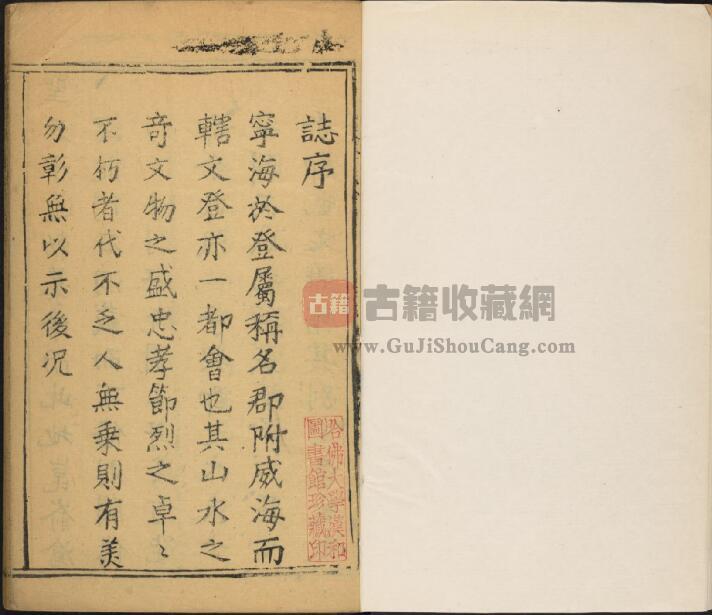 誌序
寧海於登屬稱名郡附威海而
轄文登亦一都會也其山水之
奇文物之盛忠孝節烈之卓〻
不朽者代不乏人無乗則有美
勿彰無以示後况
哈佛大學漢和
圖書館珍藏印
古籍 古籍收藏網
www.GuJiShouCang.com